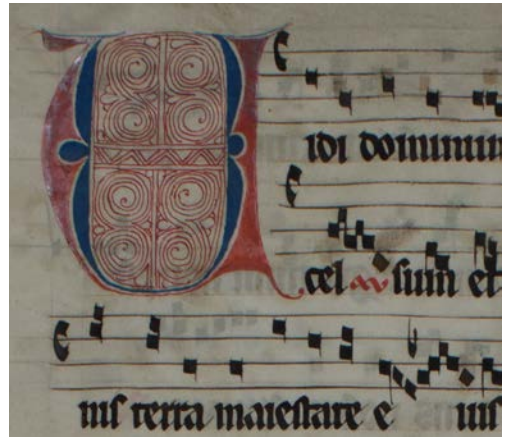 Vidi dominum
cel sum et
nis terra maiestate e ius